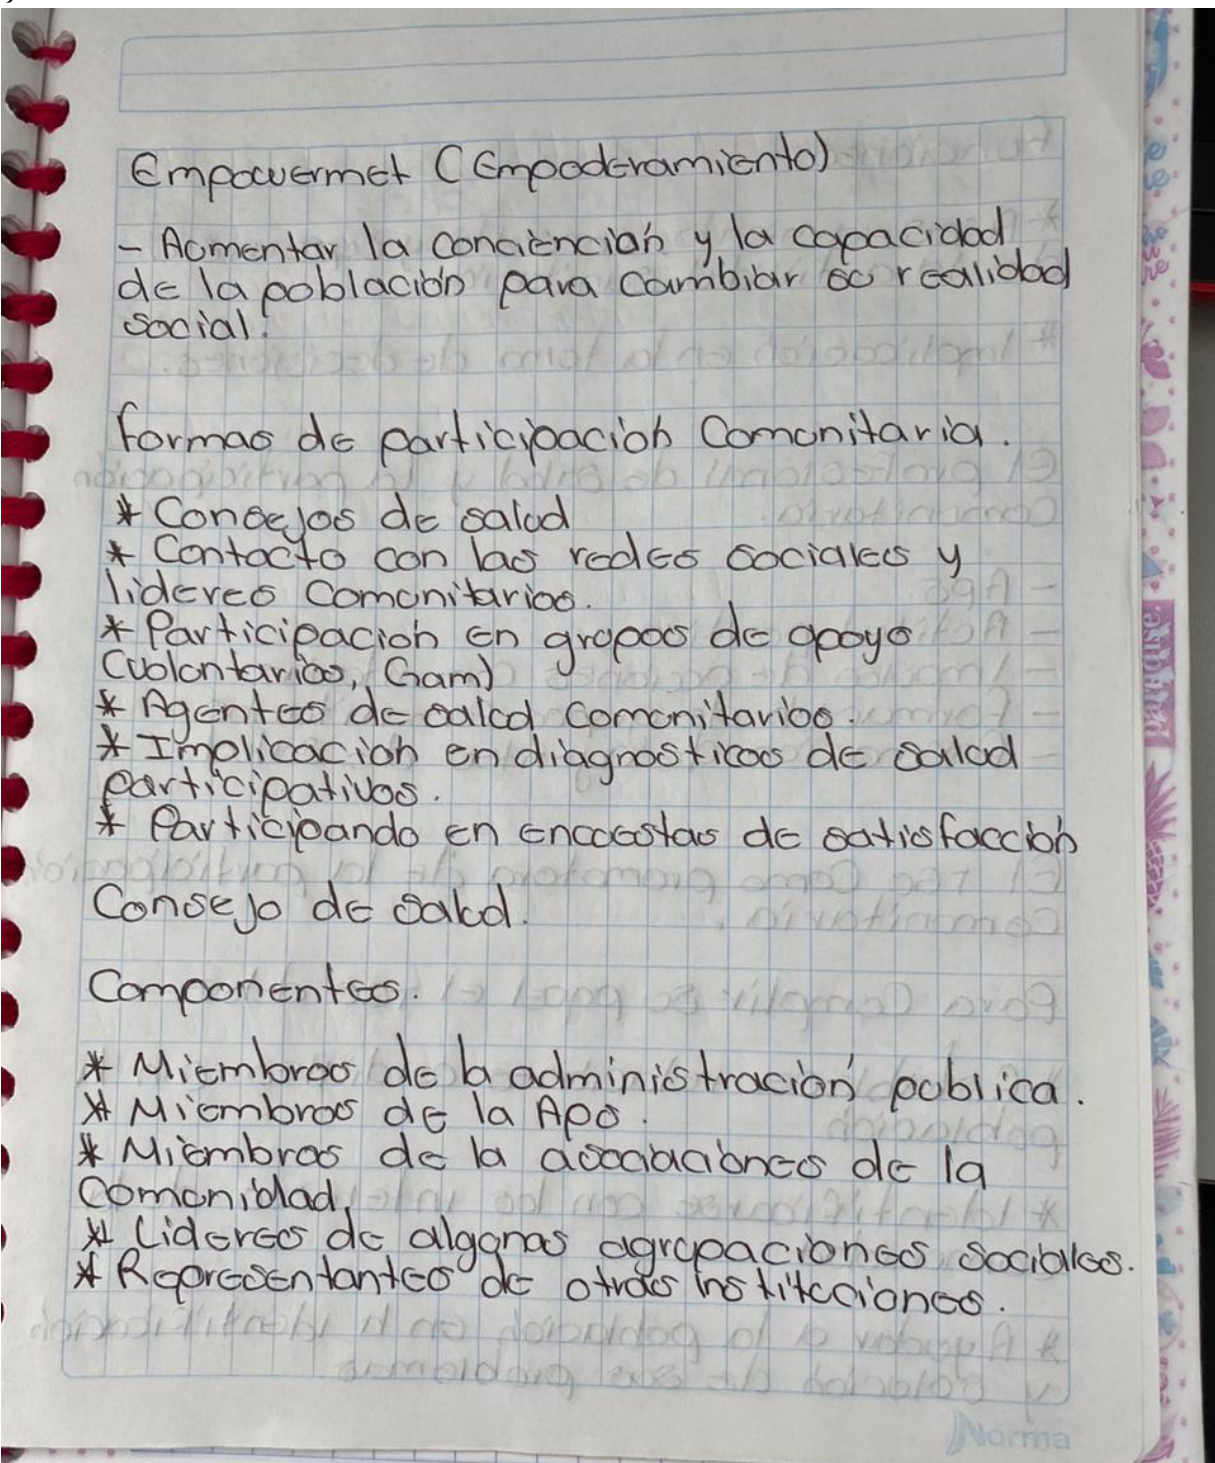 Empowermet (Empoderamiento)
- Aumentar la conciencian y la capacidad
de la población para cambiar su realidad
social.
formas de participación Comunitaria.
* Consejos de salud
* Contacto con las redes sociales y
lideres Comunitarios.
* Participación en grupos de apoyo
(volontarios, Gam)
* Agentes de salud comunitarios.
* Implicación en diagnosticos de salud
participativos.
* Participando en encuestas de satisfacción
Consejo de salud.
Componentes.
* Miembros de la administración publica.
* Miembros de la Aps.
* Miembros de la asociaciones de la
Comunidad,
* Lideres de algunas agrupaciones sociales.
* Representantes de otras instituciones.
Norma